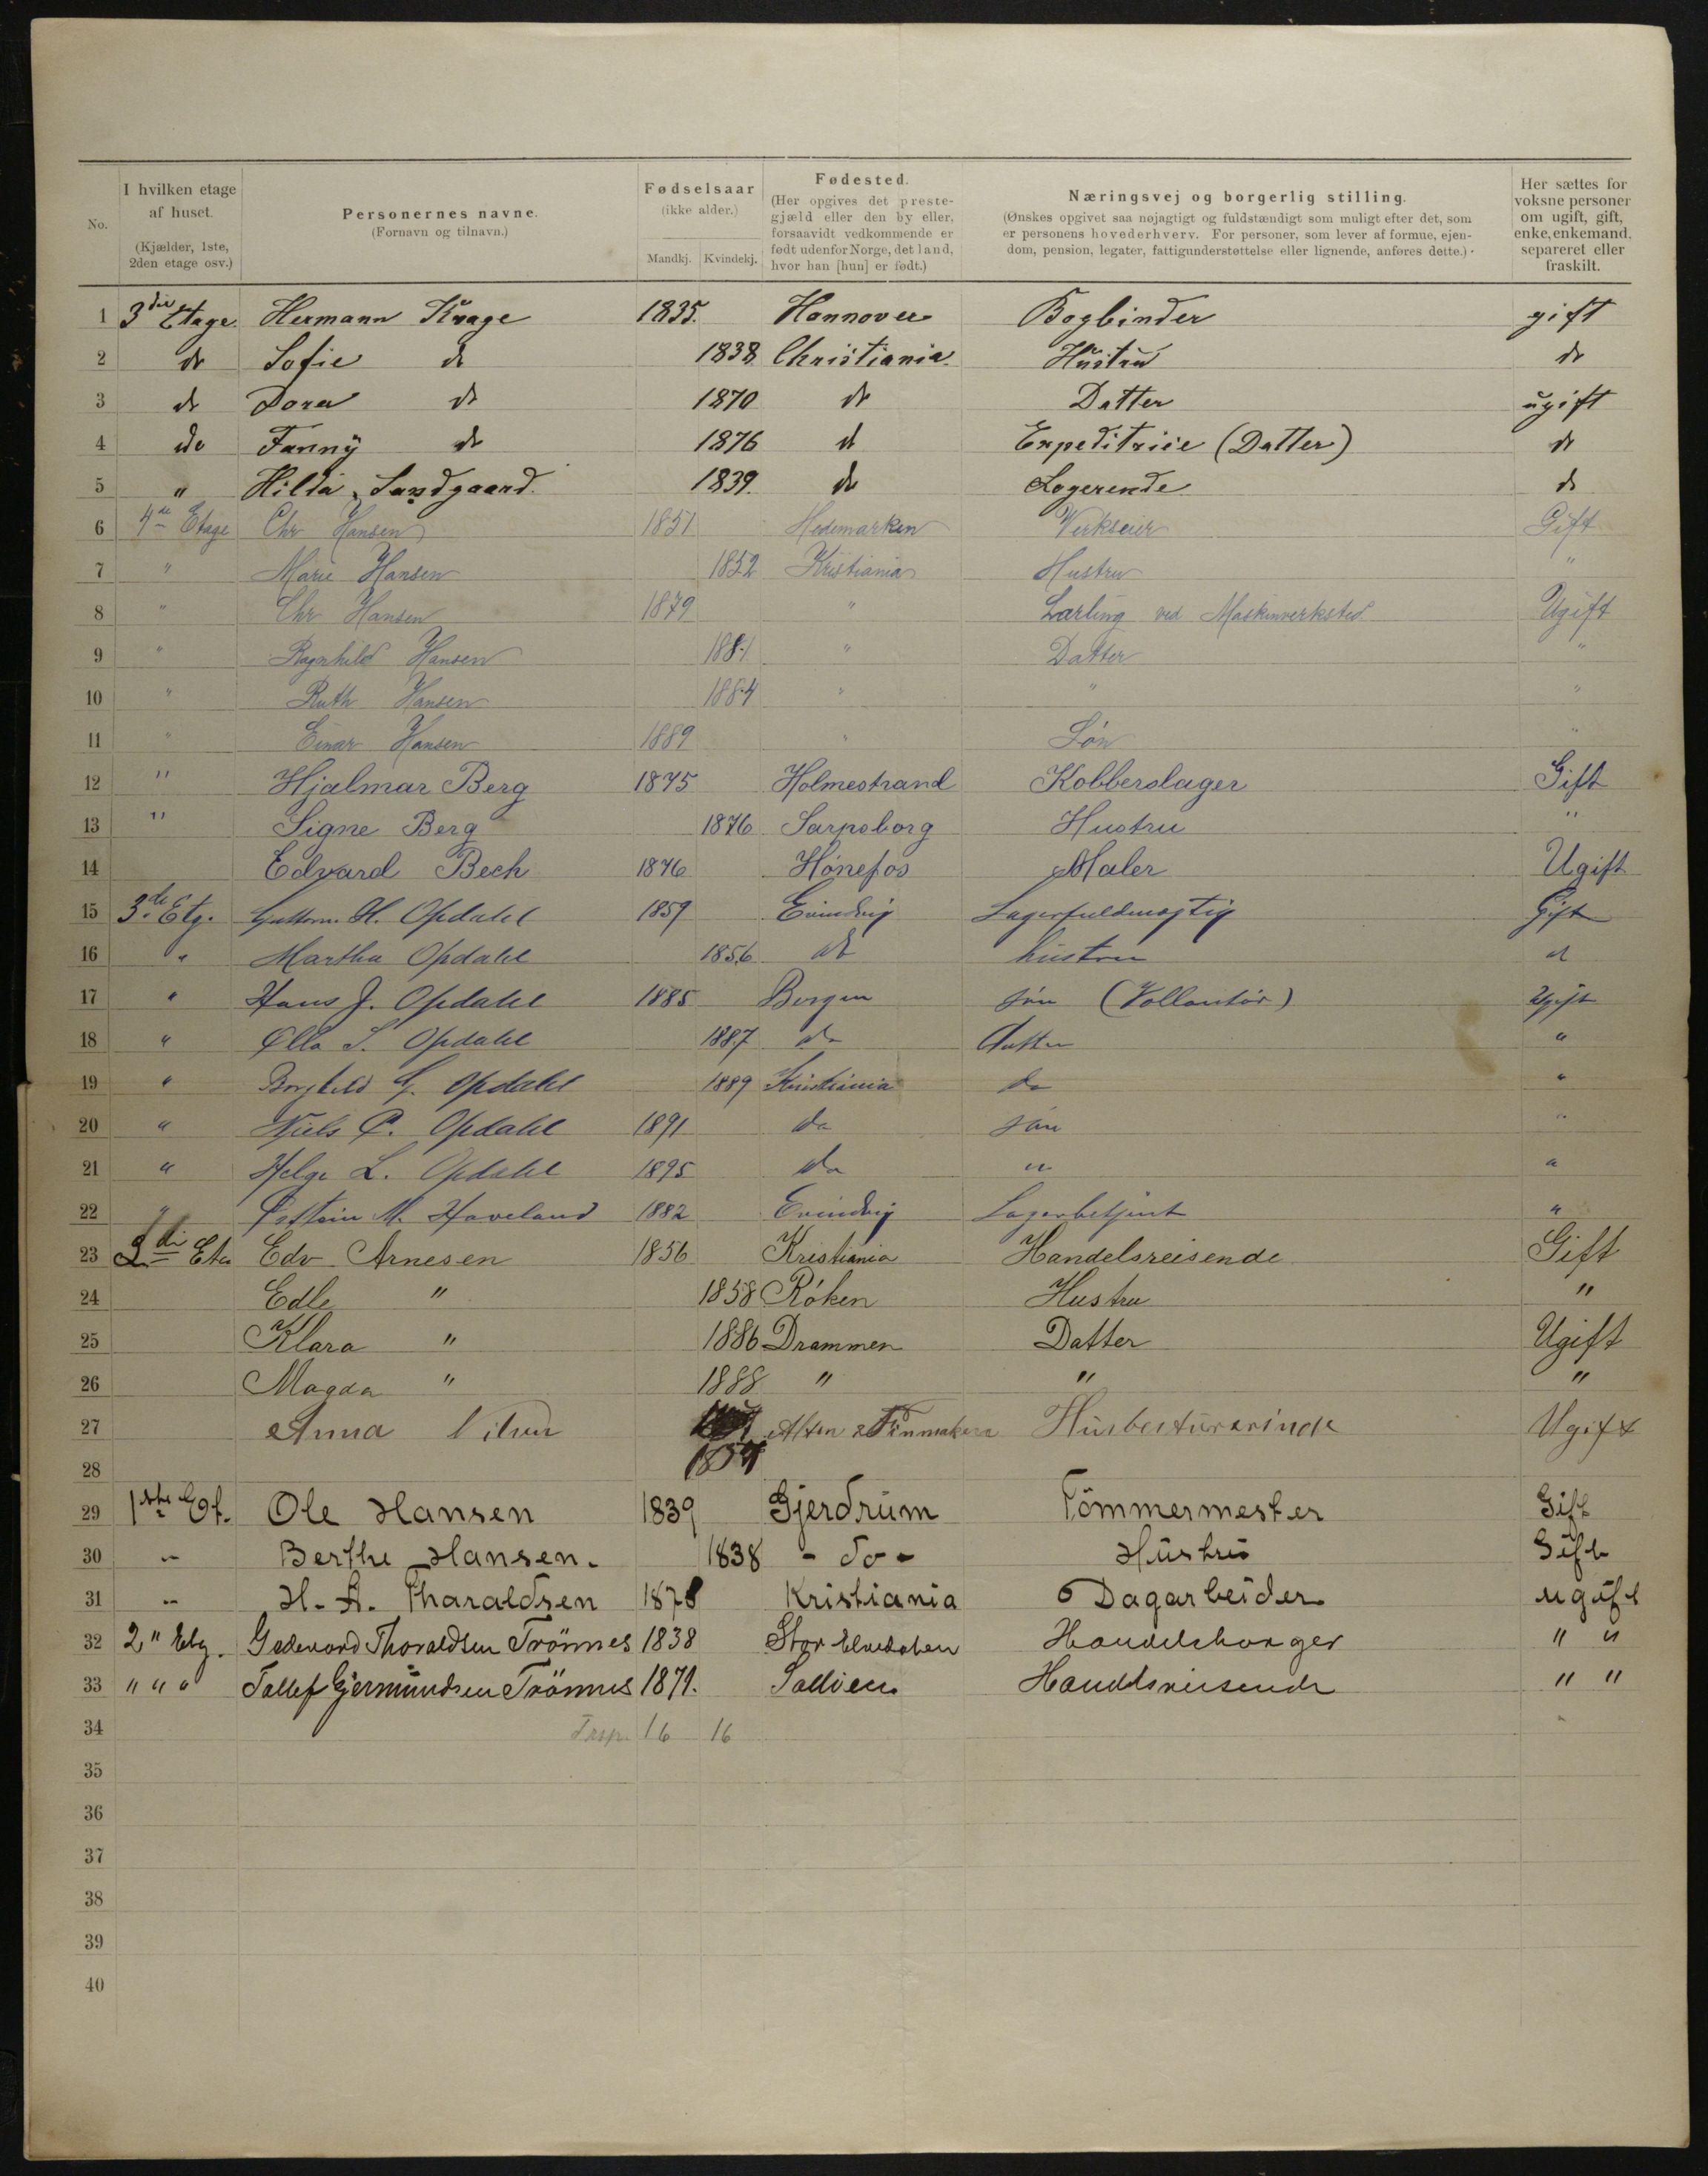 No. I hvilken etage af huset. (Kjælder, 1ste, 2den etage osv.) Personernes navne. (Fornavn og tilnavn.) Fødselsaar (ikke alder.) Mandkj. Kvindekj. Fødested. (Her opgives det prestegjæld eller den by eller, forsaavidt vedkommende er født udenfor Norge, det land, hvor han [hun] er født.) Næringsvej og borgerlig stilling. (Ønskes opgivet saa nøjagtigt og fuldstændigt som muligt efter det, som er personens hovederhverv. For personer, som lever af formue, ejendom, pension, legater, fattigunderstøttelse eller lignende, anføres dette.) Her sættes for voksne personer om ugift, gift, enke, enkemand, separeret eller fraskilt.
1 3die Etage Hermann Krage 1835. Hannover Bogbinder gift
2 do Sofie do 1838 Christiania Hustru do
3 do Dora do 1870 do Datter ugift
4 do Fanny do 1876 do Expeditrice (Datter) do
5 " Hilda Sandgaard. 1839. do Logerende do
6 4de Etage Chr Hansen 1851 Hedemarken Verkseier Gift
7 " Marie Hansen 1852 Kristiania Hustru "
8 " Chr Hansen 1879 " Lærling ved Maskinverksted Ugift
9 " Ragnhild Hansen 1881 " Datter "
10 " Ruth Hansen 1884 " " "
11 " Einar Hansen 1889 " Søn "
12 " Hjalmar Berg 1875 Holmestrand Kobberslager Gift
13 " Signe Berg 1876 Sarpsborg Hustru "
14 Edvard Bech 1876 Hønefos Maler Ugift
15 3de Etg. Guttorm H. Opdahl 1859 Evindvig Lagerfuldmægtig Gift
16 " Martha Opdahl 1856 do hustru do
17 " Hans J. Opdahl 1885 Bergen søn (Vollontør) Ugift
18 " Olla S. Opdahl 1887 do datter "
19 " Borghild G. Opdahl 1889 Kristiania do "
20 " Niels C. Opdahl 1891 do søn "
21 " Helge L. Opdahl 1895 do " "
22 " Østein M. Haveland 1882 Evindvig Lagerbetjent "
23 Edv Arnesen 1856 Kristiania Handelsreisende Gift
24 Edle " 1858 Røken Hustru "
25 Klara " 1886 Drammen Datter Ugift
26 Magda " 1888 " " "
27 Anna Alten Ugift
28
29 1ste Et. Ole Hansen 1839 Gjerdrum Tömmermester Gift
30 " Berthe Hansen. 1838 - do - Hustru Gift
31 " H. A. Tharaldsen 1878 Kristiania Dagarbeider ugift
32 2" Etg. Thoraldsen Trönnes 1838 Stor Elvedalen Handelsborger " "
33 " " " Tollef Gjermundsen Trönnes 1871. Handelsreisende " "
34 16 16
35
36
37
38
39
40